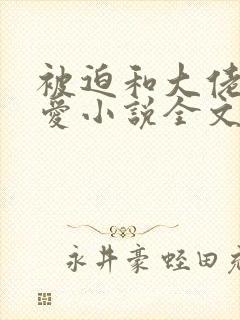 被迫和大佬
爱小说全文
永井豪蛭田充